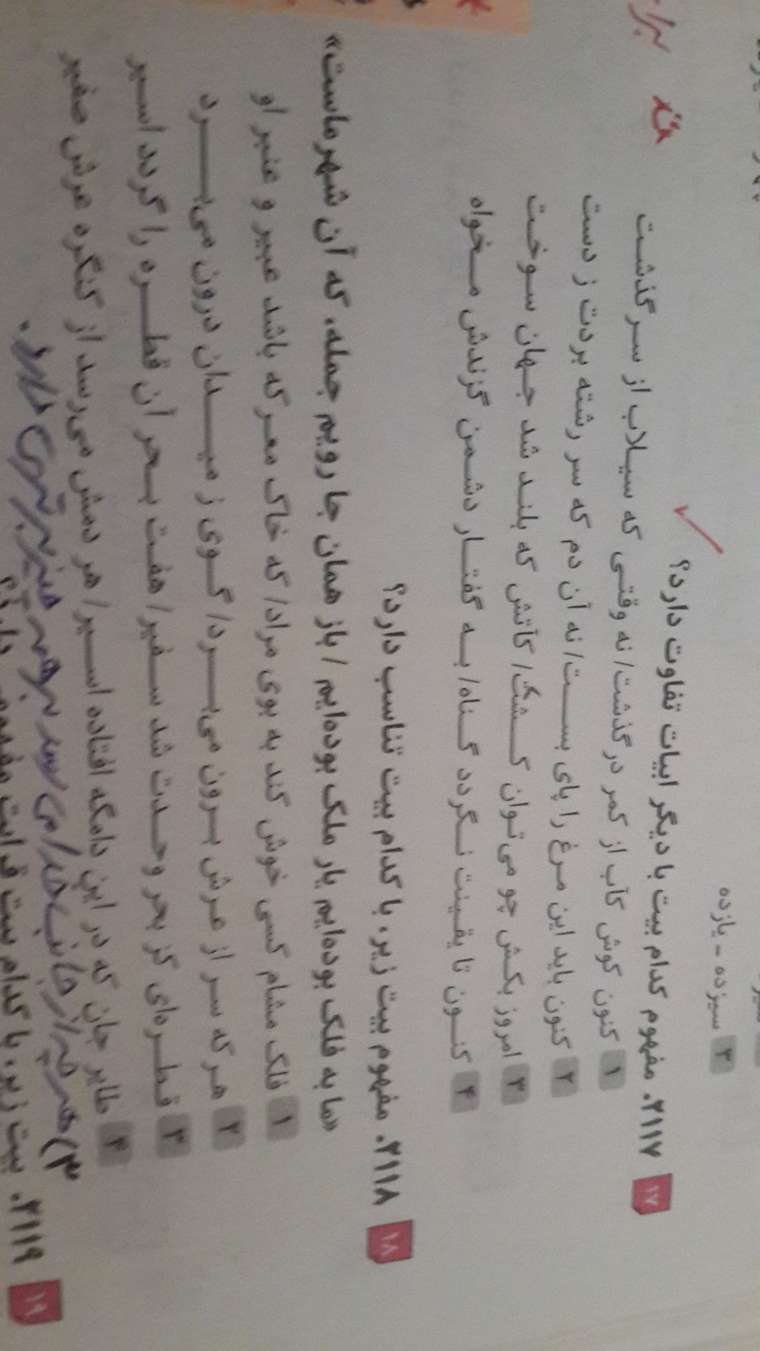 ۳ سیزده - یازده
۱۷ ۲۱۱۷. مفهوم کدام بیت با دیگر ابیات تفاوت دارد؟
۱ کنون کوش کآب از کمر درگذشت/ نه وقتی که سیلاب از سر گذشت
۲ کنون باید این مرغ را پای بست/ نه آن دم که سر رشته بردت ز دست
۳ امروز بکش چو می‌توان کشت/ کآتش که بلند شد جهان سوخت
۴ کنون تا یقینت نگردد گناه/ به گفتار دشمن گزندش مخواه
۱۸ ۲۱۱۸. مفهوم بیت زیر، با کدام بیت تناسب دارد؟
«ما به فلک بوده‌ایم یار ملک بوده‌ایم / باز همان جا رویم جمله، که آن شهر ماست»
۱ فلک مشام کسی خوش کند به بوی مراد/ که خاک معرکه باشد عبیر و عنبر او
۲ هر که سر از عرش برون می‌برد/ گوی ز میدان درون می‌برد
۳ قطره‌ای کز بحر وحدت شد سفیر/ هفت بحر آن قطره را گردد اسیر
۴ طایر جان که در این دامگه افتاده اسیر/ هر دمش می‌رسد از کنگره عرش صفیر
۳) هرچه از جانب خدا می رسد بر همه چیز برتری دارد.
۱۹ ۲۱۱۹. بیت زیر، با کدام بیت قرابت مفهومی دارد؟